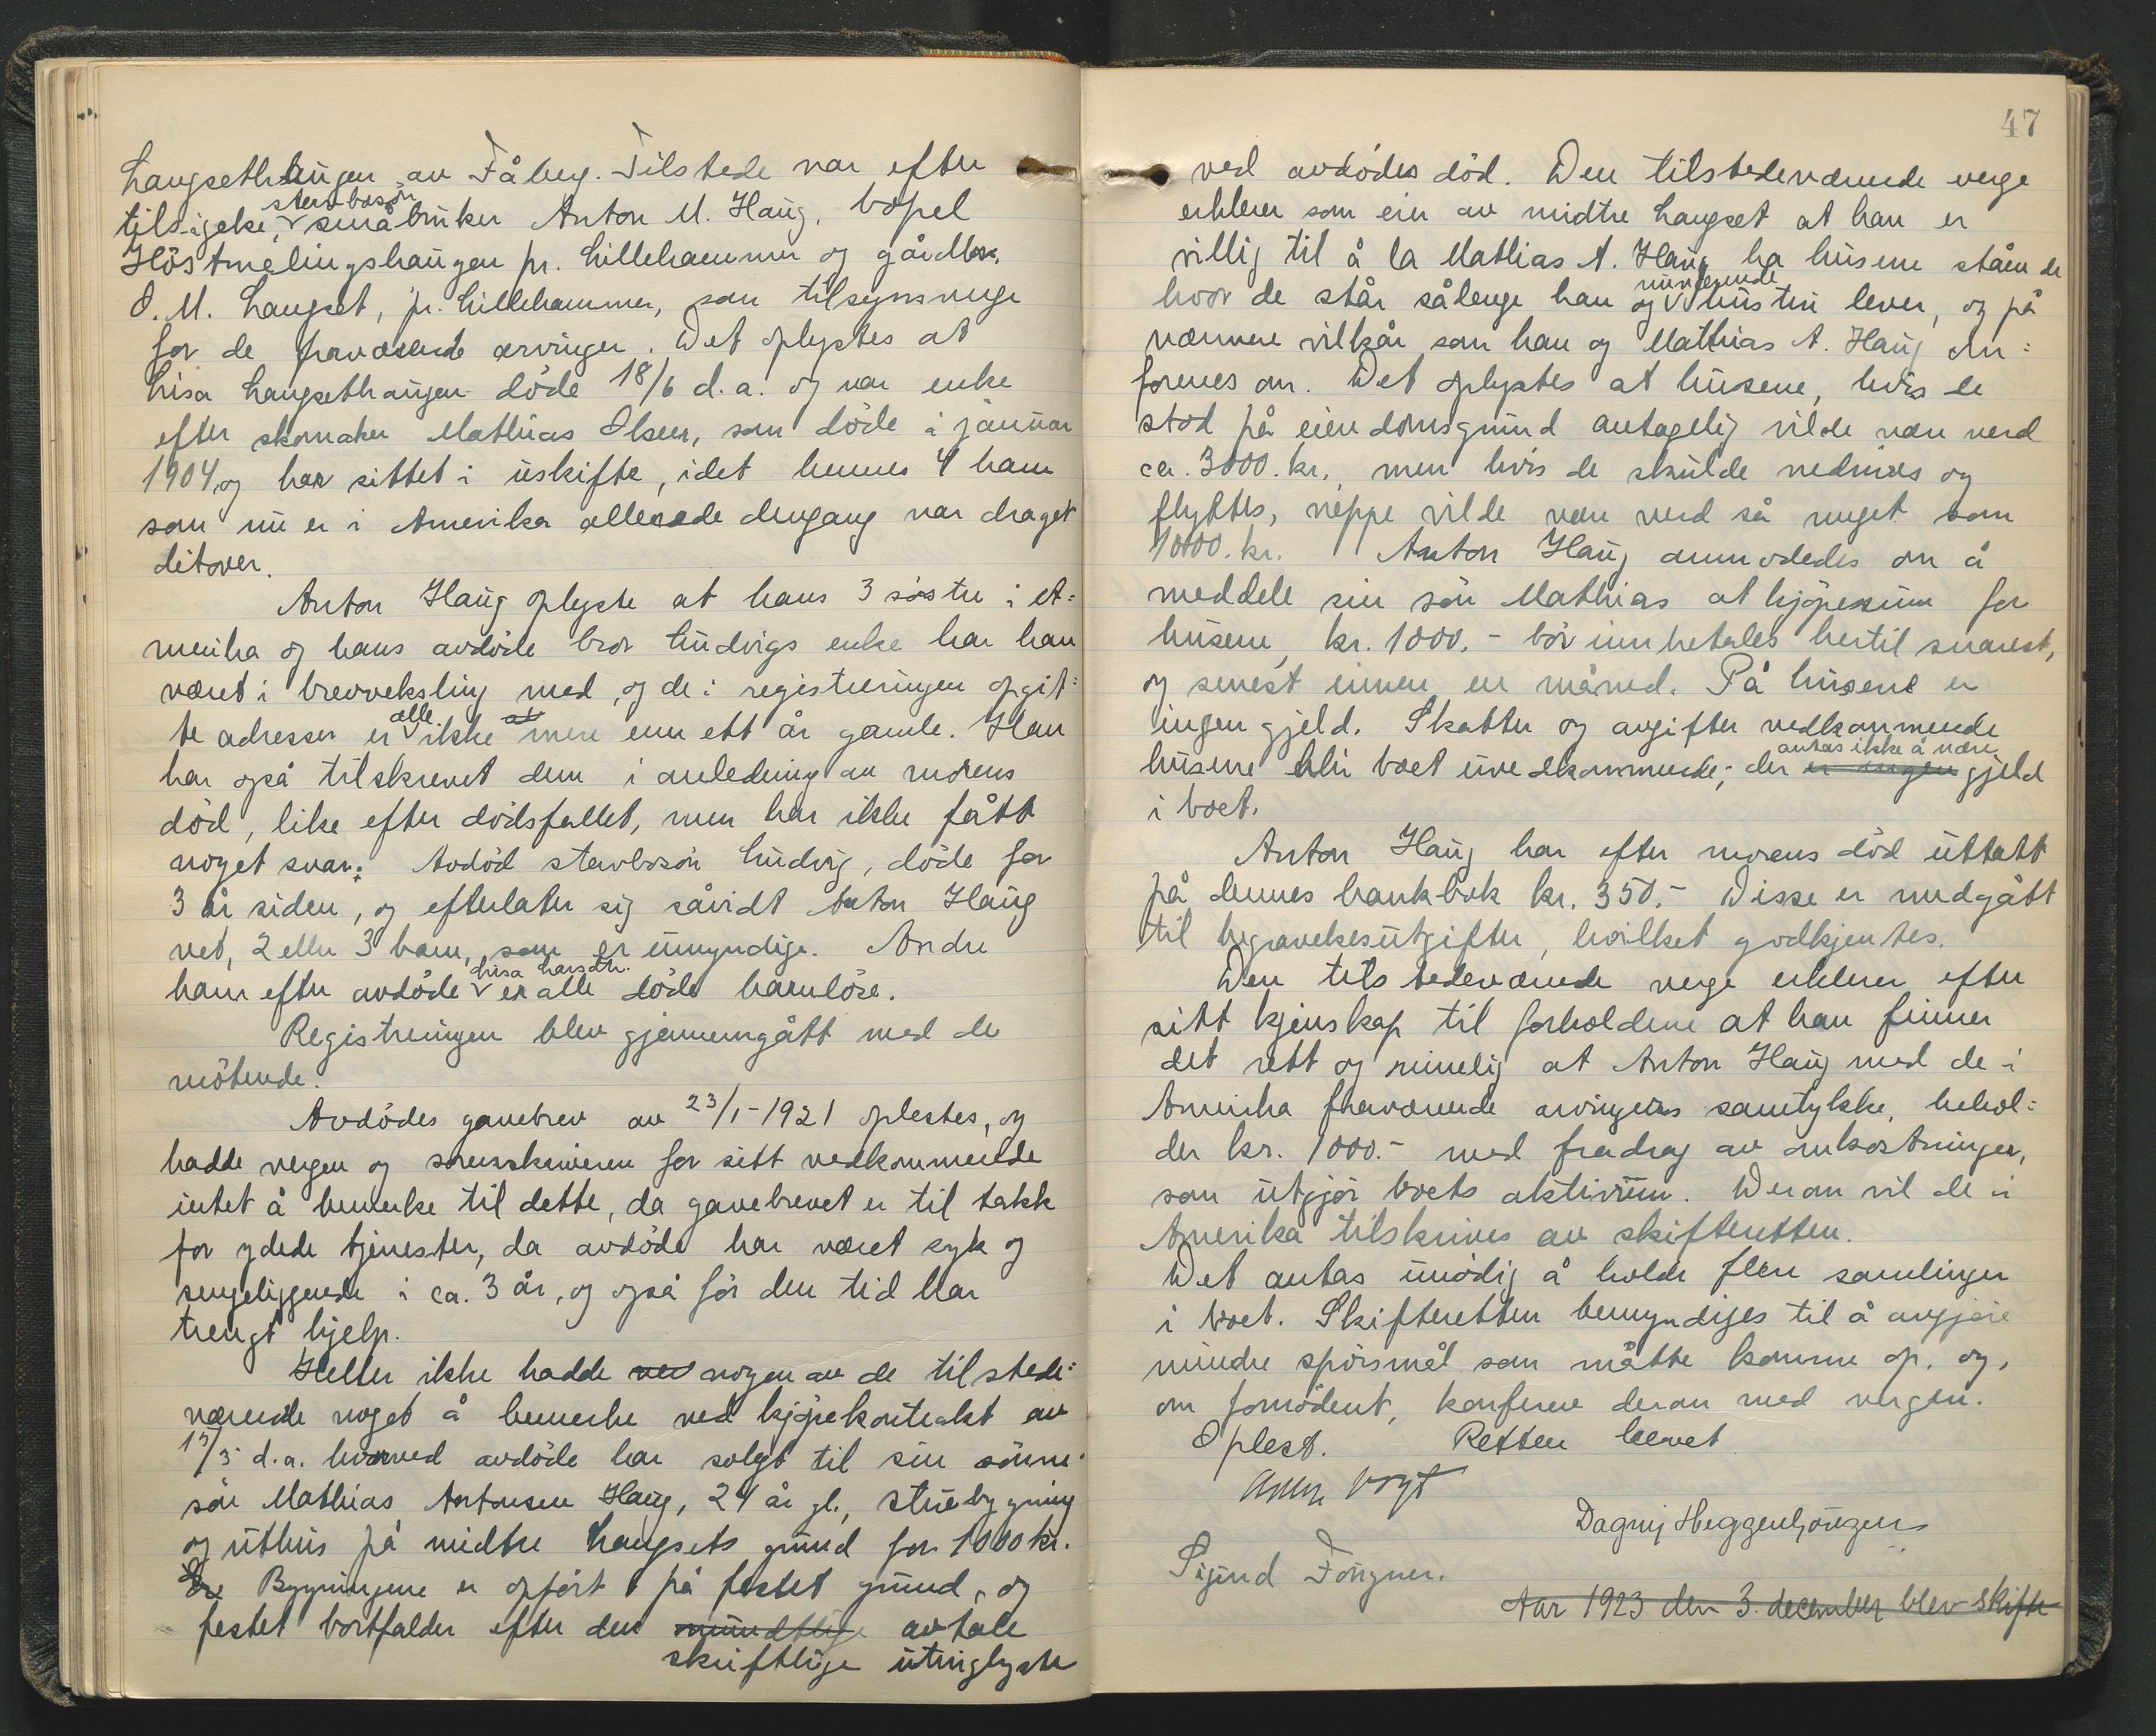 Langsethhaugen av Fåberg. Tilstede var efter
stervbosøn
tilsigelse, småbruker Anton M. Haug, bopel
Höstmelingshaugen pr. Lillehammer og gårdbr.
O. M. Langset, pr. Lillehammer, som tilsynsverge
for de fraværende arvinger. Det oplystes at
Lisa Langsethaugen döde 18/6 d.a. og var enke
efter skomaker Mathias Olsen, som döde i januar
1904, og har sittet i uskifte, idet hennes 4 barn
som nu er i Amerika allerede dengang var draget
ditover.
Anton Haug oplyste at hans 3 söstre i A=
merika og hans avdöde bror Ludvigs enke har han
været i brevveksling med, og de i registreringen opgit=
alle
te adresser er ikke mere enn ett år gamle. Han
har også tilskrevet dem i anledning av morens
död, like efter dödsfallet, men har ikke fått
noget svar. Avdöd stervbosön Ludvig, döde for
3 år siden, og efterlater sig såvidt Anton Haug
vet, 2 eller 3 barn, som er umyndige. Andre
Lisa Larsdtr.
barn efter avdöde er alle döde barnlöse.
Registreringen blev gjennemgått med de
mötende.
Avdödes gavebrev av 23/1-1921 oplestes, og
hadde vergen og sorenskriveren for sitt vedkommende
intet å bemerke til dette, da gavebrevet er til takk
for ydede tjenester, da avdöde har været syk og
sengeliggende i ca. 3 år, og også för den tid har
trengt hjelp.
Heller ikke hadde nogen av de tilstede=
værende noget å bemerke ved kjöpekontrakt av
/3 d.a. hvorved avdöde har solgt til sin sönne=
sön Mathias Antonsen Haug, 24 år gl., stuebygning
og uthus på midtre Langsets grund for 1000 kr.
Bygningene er opfört på festet grund, og
festet bortfalder efter den mundtlige avtale
skriftlige utinglyste
47
ved avdödes död. Den tilstedeværende verge
erklerer som eier av midtre Langset at han er
villig til å la Mathias A. Haug ha husene stående
nuværende
hvor de står sålenge han og hustru lever, og på
nærmere vilkår som han og Mathias A. Haug om=
forenes om. Det oplystes at husene, hvis de
stod på eiendomsgrund antagelig vilde være verd
ca. 3000. kr., men hvis de skulde nedrives og
flyttes, neppe vilde være verd så meget som
1000. kr. Anton Haug anmodedes om å
meddele sin sön Mathias at kjöpesum for
husene, kr. 1000.- bör innbetales hertil snarest,
og senest innen en måned. På husene er
ingen gjeld. Skatter og avgifter vedkommende
antas ikke å være
husene blir boet uvedkommende; der er ingen gjeld
i boet.
Anton Haug har efter morens död uttatt
på dennes bankbok kr. 350.- Disse er medgått
til begravelsesutgifter, hvilket godkjentes.
Den tilstedeværende verge erklerer efter
sitt kjenskap til forholdene at han finner
det rett og rimelig at Anton Haug med de i
Amerika fraværende arvingers samtykke, behol=
der kr. 1000.- med fradrag av omkostninger,
som utgjör boets aktivum. Derom vil de i
Amerika tilskrives av skifteretten.
Det antas unödig å holde flere samlinger
i boet. Skifteretten bemyndiges til å avgjöre
mindre spörsmål som måtte komme op, og,
om fornödent, konferere derom med vergen.
Oplest. Retten hevet
Vogt
Dagny Heggenhougen
Sigurd Fougner.
Aar 1923 den 3. december blev skifte